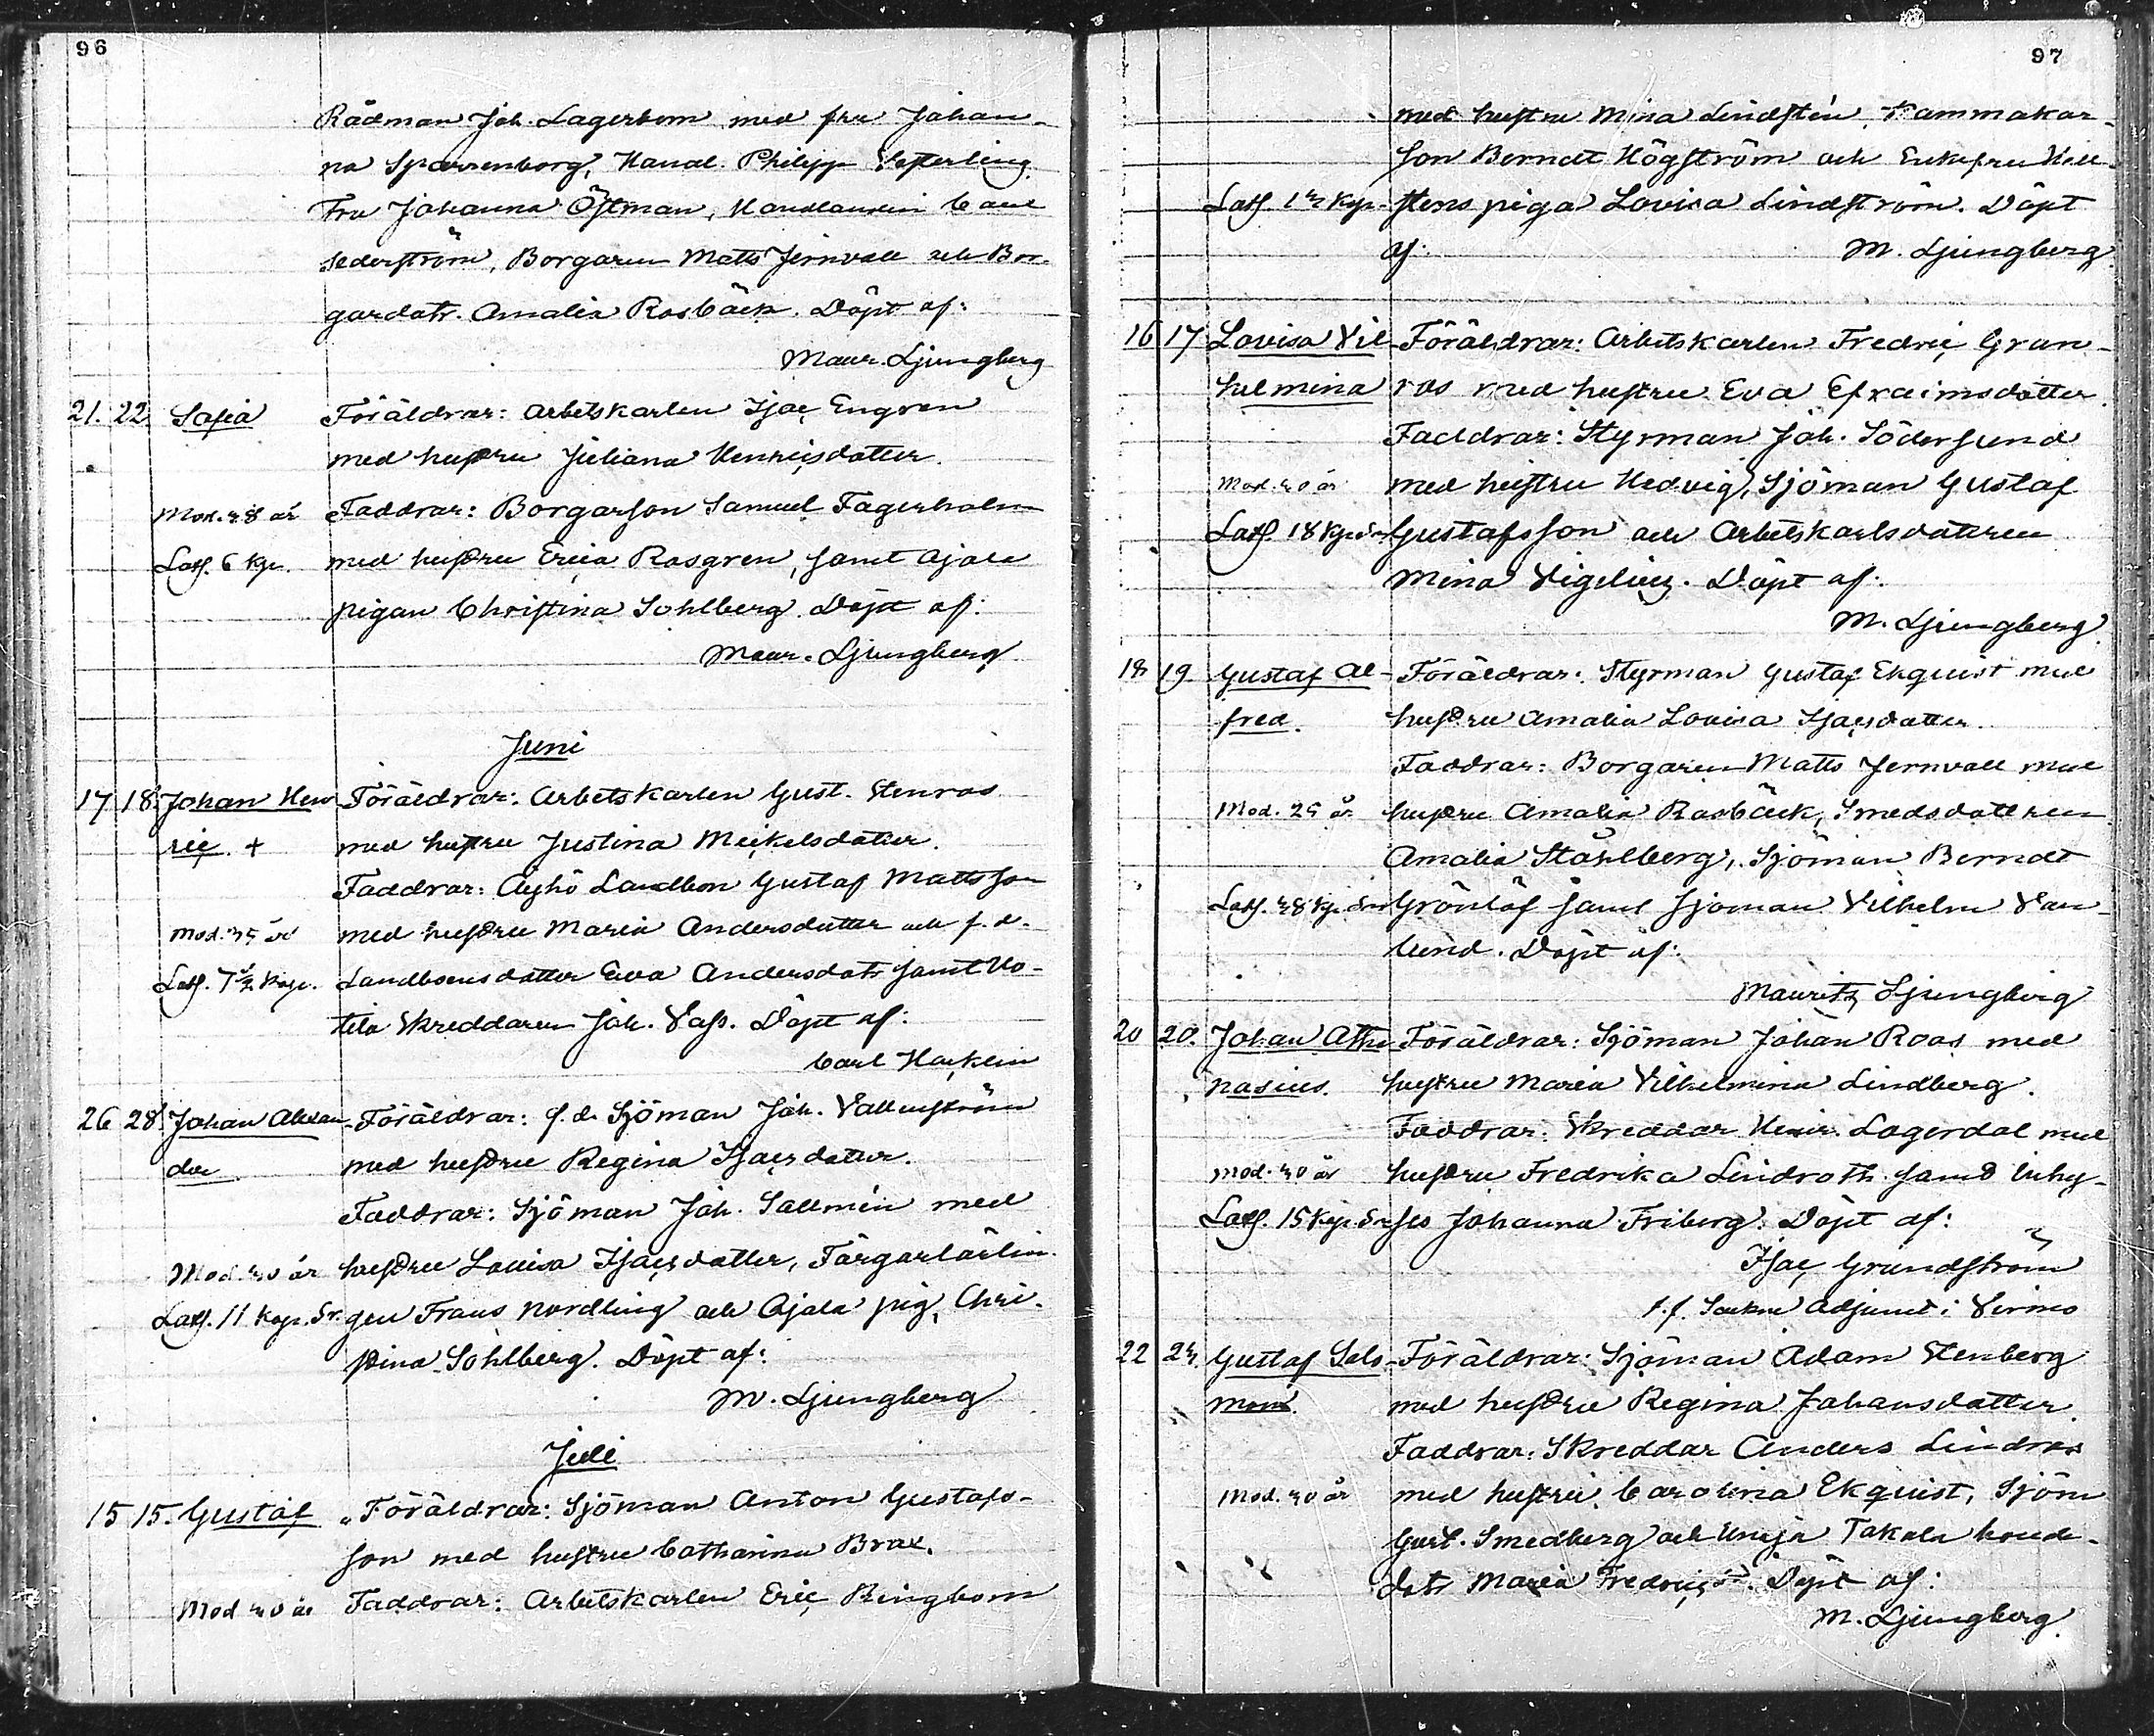 96
Rådman Joh. Lagerbom med fru Johan-
na Sparrenborg, Handl. Philipp Vesterling
Fru Johanna Östman, Handlanden Carl
Sederström, Borgaren Matts Jernvall och Bor-
gardotr. Amalia Rosbäck. Döpt af:
Maur. Ljungberg
21. 22. Sofia Föräldrar: Arbetskarlen Isac Engren
med hustru Juliana Henricsdotter.
Mod. 28 år Faddrar: Borgarson Samuel Fagerholm
Läsf. 6 kp. med hustru Erica Rosgren, samt Ajala
pigan Christina Sohlberg. Döpt af:
Maur. Ljungberg
Juni
17 18. Johan Hen- Föräldrar: Arbetskarlen Gust. Stenros
ric + med hustru Justina Mickelsdotter.
Faddrar: Ayhö Landbon Gustaf Mattsson
Mod. 35 år med hustru Maria Andersdotter och f.d.
7½ kp. Landboens dotter Eva Andersdotr samt Ho-
tila Skreddaren Joh. Vass. Döpt af:
Carl Hacklin
26 28. Johan Alexan- Föräldrar: f.d. Sjöman Joh. Vallenström
der med hustru Regina Isacsdotter.
Faddrar: Sjöman Joh. Sallmén med
Mod. 40 år hustru Lovisa Isacsdotter, Färgarlärlin-
11 kp. gen Frans Nordling och Ajala pig. Chri-
stina Sohlberg. Döpt af:
M. Ljungberg
Juli
15 15. Gustaf Föräldrar: Sjöman Anton Gustafs-
son med hustru Catharina Brax.
Mod 40 år Faddrar: Arbetskarlen Eric Ringbom
97
med hustru Mina Lindstén, Kammakar-
son Berndt Högström och Enkefru Hell-
stens piga Lovisa Lindström. Döpt
af: M. Ljungberg
16 17 Lovisa Vil- Föräldrar: Arbetskarlen Fredric Gran-
helmina ros med hustru Eva Efraimsdotter.
Faddrar: Styrman Joh. Söderlund
Mod. 40 år med hustru Hedvig, Sjöman Gustaf
18 kp. Gustafsson och Arbetskarlsdottren
Mina Vigelius. Döpt af:
M. Ljungberg
18 19 Gustaf Al- Föräldrar: Styrman Gustaf Ekquist med
fred. hustru Amalia Lovisa Isacsdotter.
Faddrar: Borgaren Matts Jernvall med
Mod. 25 år hustru Amalia Rosbäck, Smedsdottren
Amalia Ståhlberg, Sjöman Berndt
Grönlöf samt Sjöman Vilhelm Van-
lund. Döpt af:
Mauritz Ljungberg
20 20. Johan Atha- Föräldrar: Sjöman Johan Roos med
nasius. hustru Maria Vilhelmina Lindberg.
Faddrar: Skreddar Henr. Lagerdal med
Mod. 40 år hustru Fredrika Lindroth samt inhy-
15 kp. ses Johanna Friberg. Döpt af:
Isac Grundström
t.f. Sockne Adjunct i Virmo
22 24. Gustaf Salo- Föräldrar: Sjöman Adam Stenberg
mon. med hustru Regina Johansdotter.
Faddrar: Skreddar Anders Lindros
Mod. 40 år med hustru Carolina Ekquist, Sjöm
Gust. Smedberg och Takala bond-
dotr Maria Fredricsd. Döpt af:
M. Ljungberg